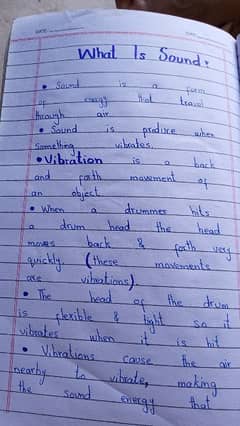 What Is Sound?
• Sound is a form
of energy that travel
through air.
• Sound is produce when
Something vibrates.
• Vibration is a back
and forth movement of
an object.
• When a drummer hits
a drum head the head
moves back & forth very
quickly. (these movements
are vibrations).
• The head of the drum
is flexible & tight so it
vibrates when it is hit
• Vibrations cause the air
nearby to vibrate, making
the sound energy that